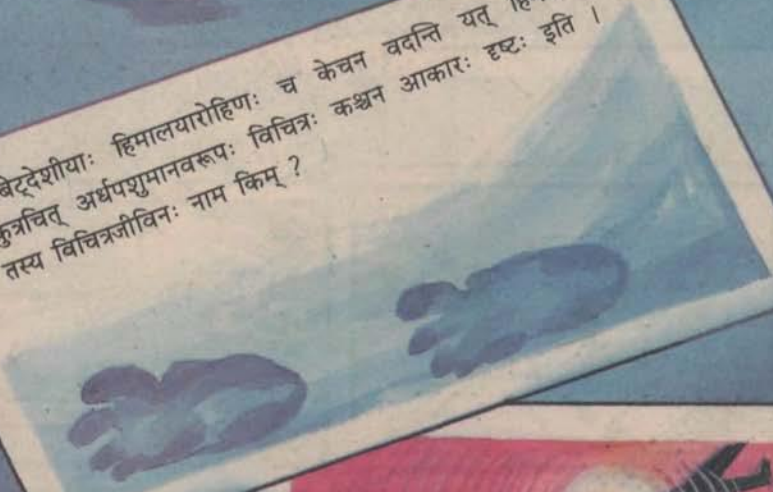 बेट्देशीयाः हिमालयारोहिणः च केचन वदन्ति यत्
कुत्रचित् अर्धपशुमानवरूपः विचित्रः कश्चन आकारः दृष्टः इति ।
तस्य विचित्रजीविनः नाम किम् ?